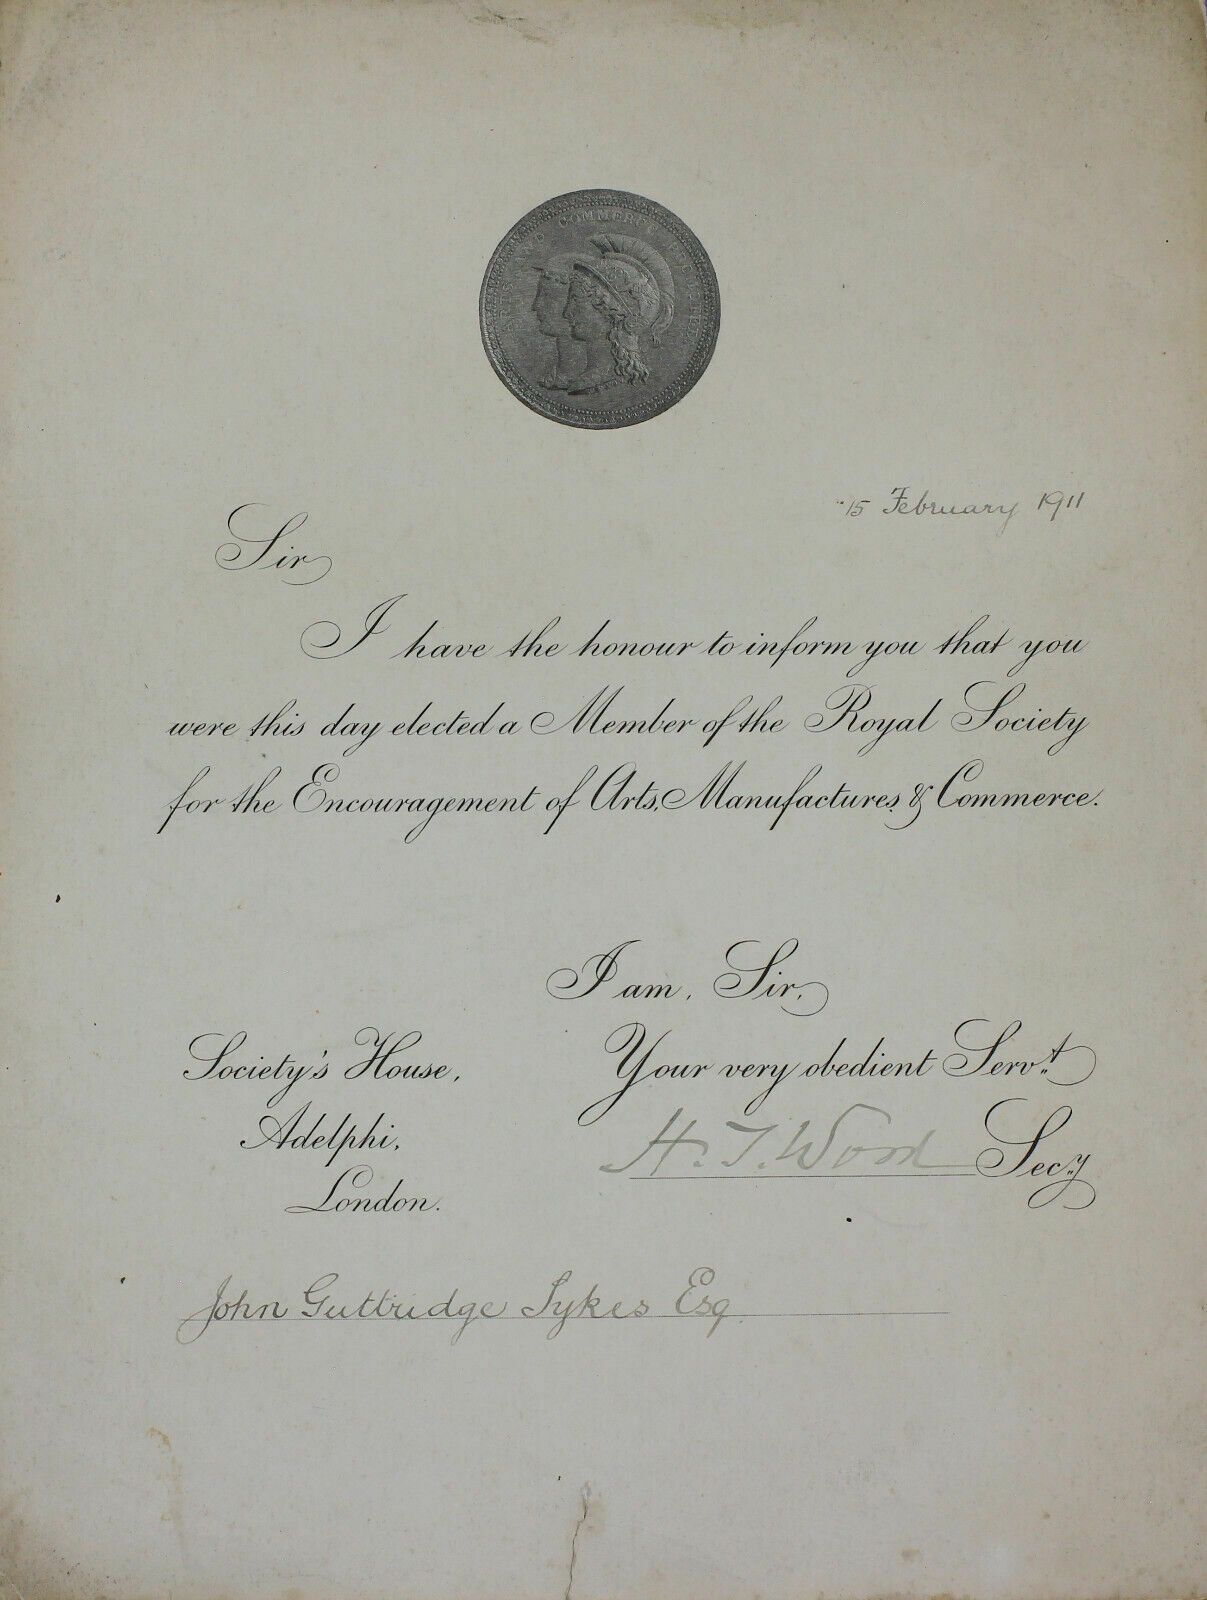 ARTS AND COMMERCE PROMOTED
15 February 1911
Sir
I have the honour to inform you that you
were this day elected a Member of the Royal Society
for the Encouragement of Arts, Manufactures & Commerce.
I am, Sir,
Your very obedient Servt.
H. T. Wood Secy
Society's House,
Adelphi,
London.
John Guttridge Sykes Esq